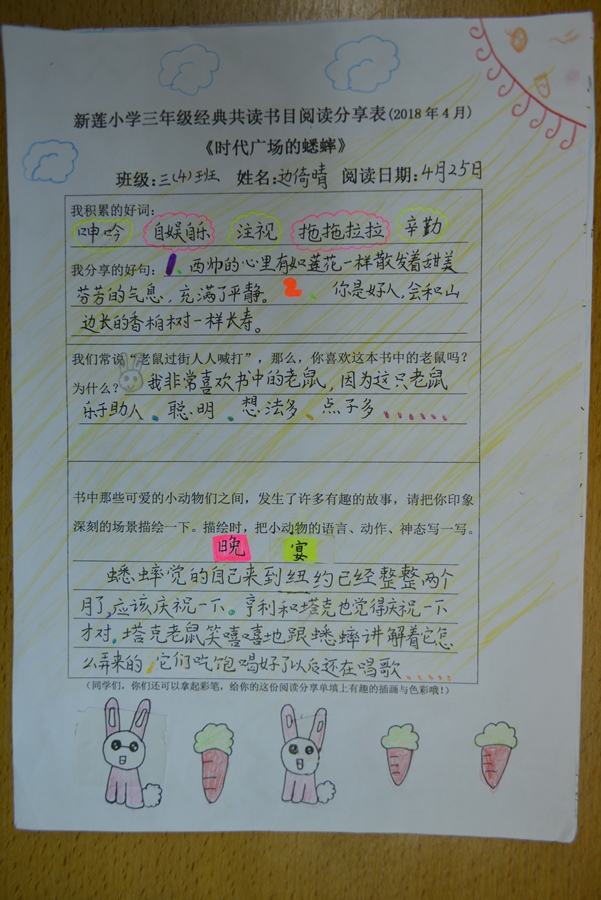 新莲小学三年级经典共读书目阅读分享表(2018年4月)
《时代广场的蟋蟀》
班级:三(4)班 姓名:边倚晴 阅读日期:4月25日
我积累的好词:
呻吟 自娱自乐 注视 拖拖拉拉 辛勤
我分享的好句: 1、西帅的心里有如莲花一样散发着甜美
芬芳的气息,充满了平静。 2、你是好人,会和山
边长的香柏树一样长寿。
我们常说“老鼠过街人人喊打”,那么,你喜欢这本书中的老鼠吗?
为什么? 我非常喜欢书中的老鼠,因为这只老鼠
乐于助人、聪明、想法多、点子多......
书中那些可爱的小动物们之间,发生了许多有趣的故事,请把你印象
深刻的场景描绘一下。描绘时,把小动物的语言、动作、神态写一写。
晚 宴
蟋蟀觉的自己来到纽约已经整整两个
月了,应该庆祝一下。亨利和塔克也觉得庆祝一下
才对。塔克老鼠笑嘻嘻地跟蟋蟀讲解着它怎
么弄来的,它们吃饱喝好了以后还在唱歌......
(同学们,你们还可以拿起彩笔,给你的这份阅读分享单填上有趣的插画与色彩哦!)